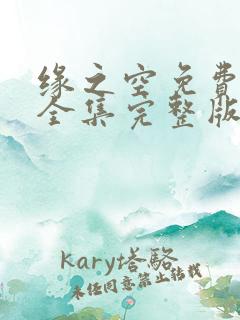 缘之空免费
全集完整版
karyt塔駱
未经同意禁止转载